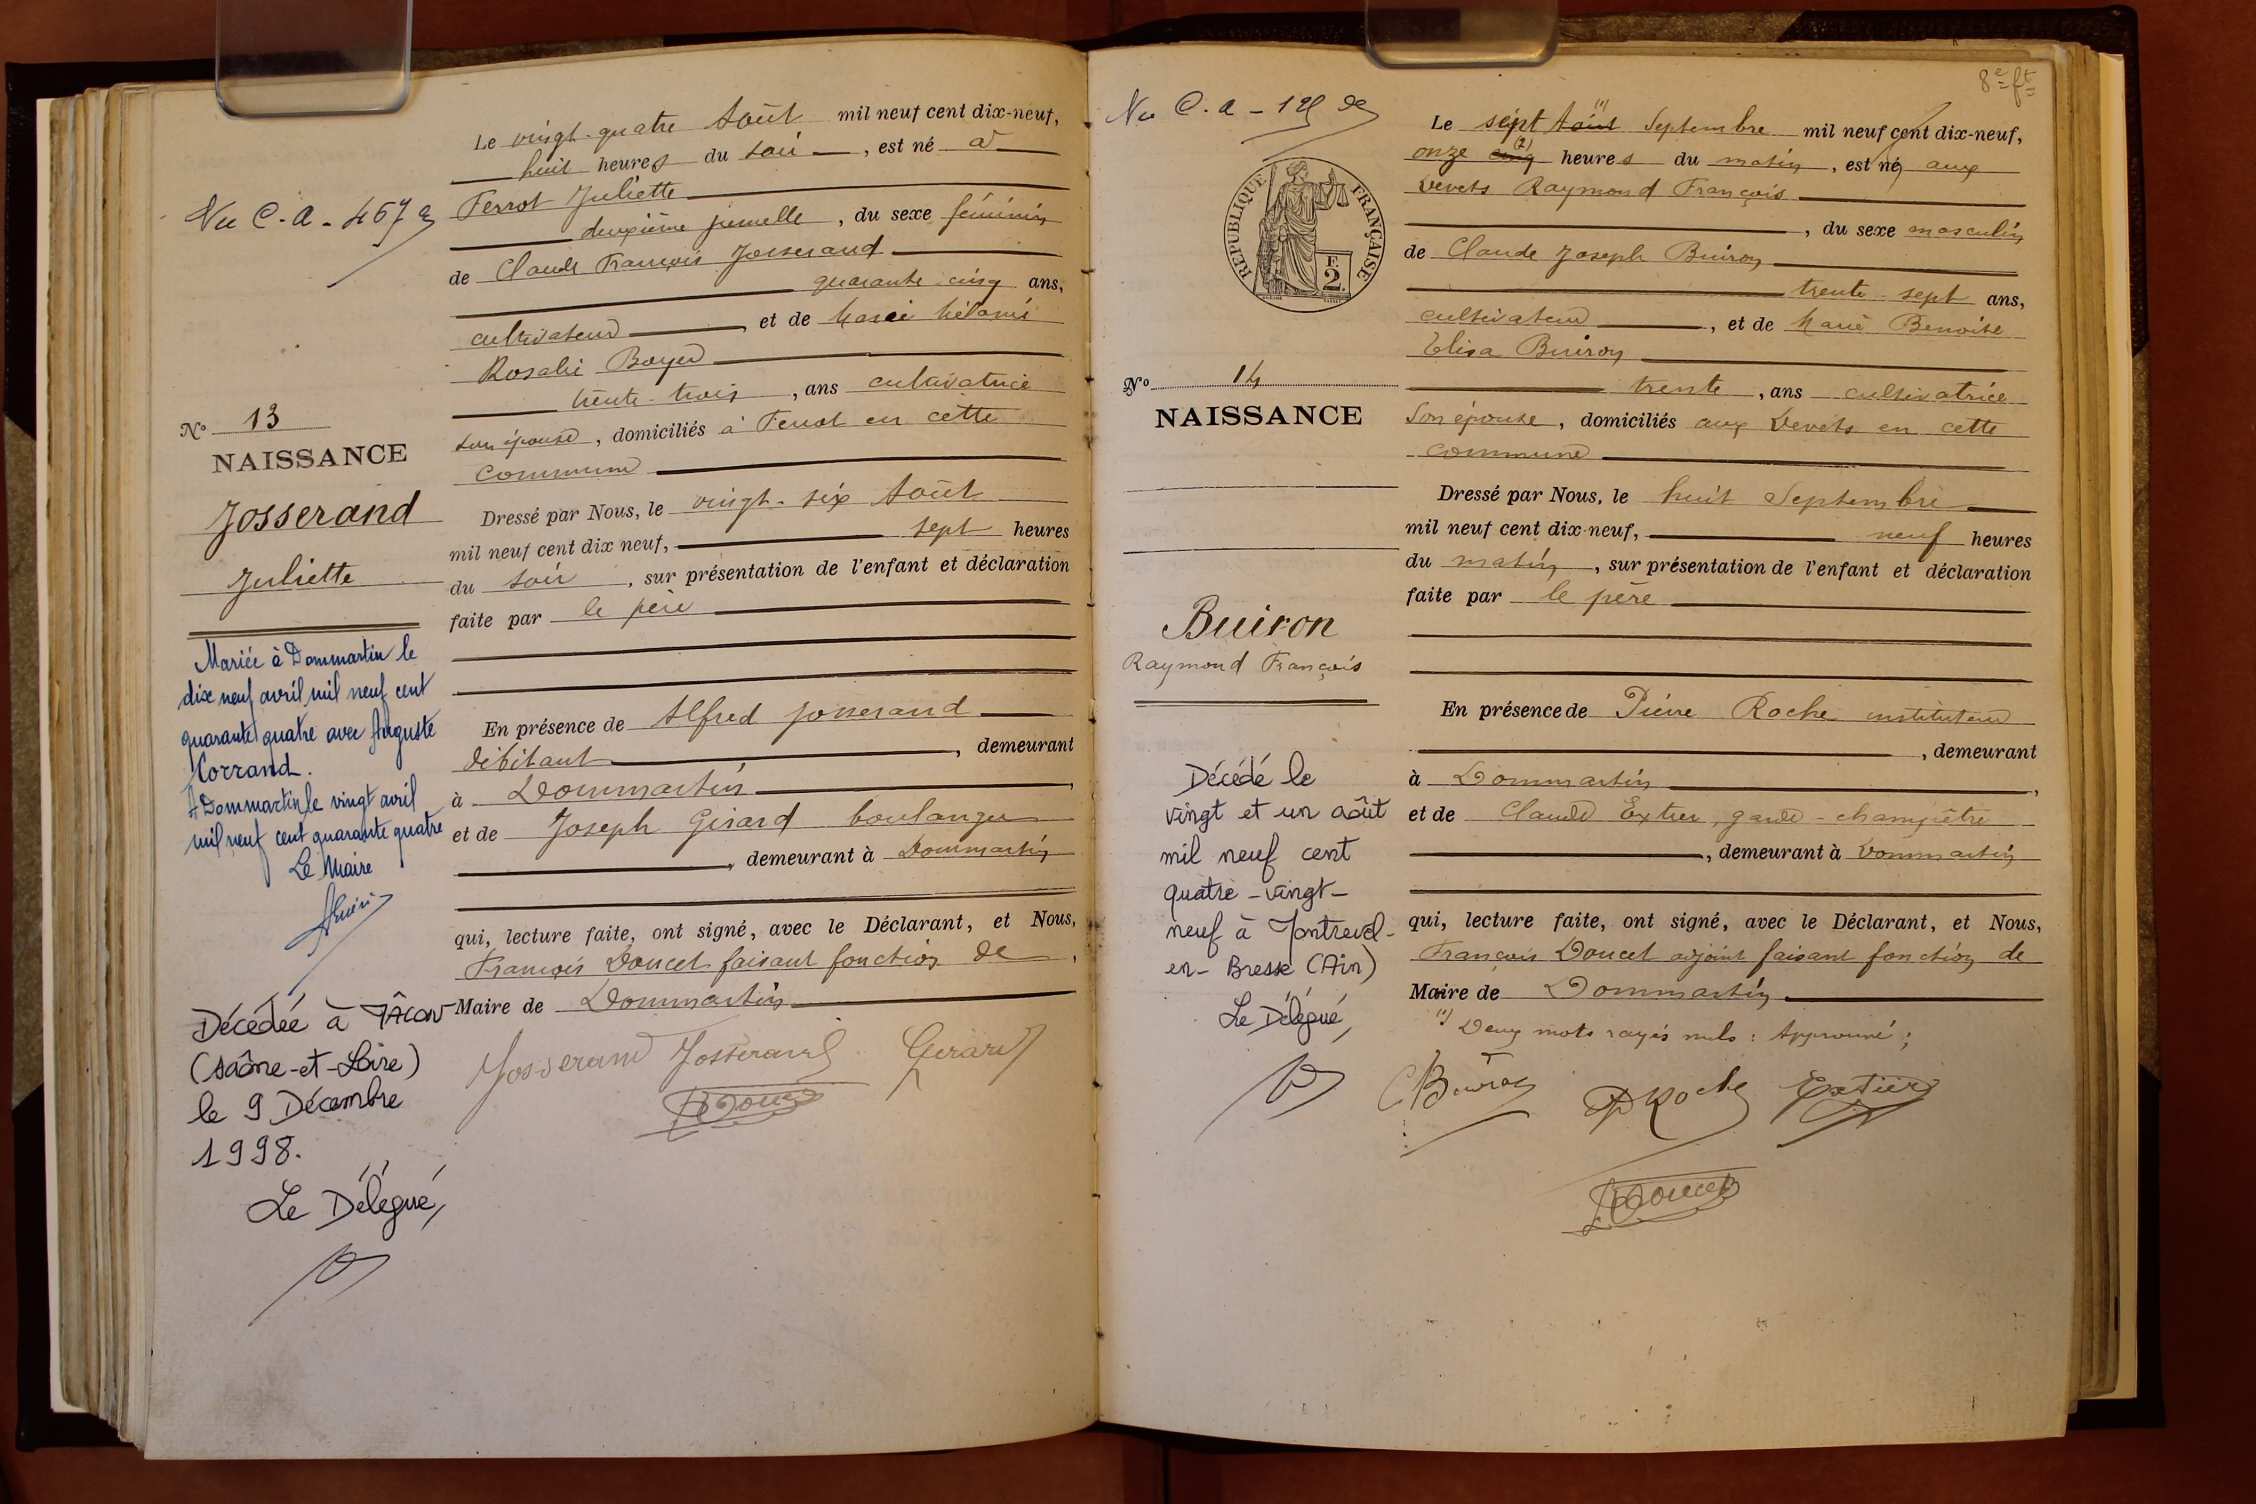 Vu C. a - 467
Le vingt-quatre Août mil neuf cent dix-neuf,
huit heures du soir, est né à
Ferrot Juliette
deuxième jumelle, du sexe féminin
de Claude François Josserand
quarante cinq ans,
cultivateur, et de Marie Mélanie
Rosalie Boyer
trente-trois, ans cultivatrice
son épouse, domiciliés à Ferrot en cette
commune
Dressé par Nous, le vingt-six Août
mil neuf cent dix neuf, sept heures
du soir, sur présentation de l'enfant et déclaration
faite par le père
En présence de Alfred Josserand
débitant, demeurant
à Dommartin,
et de Joseph Girard boulanger
, demeurant à Dommartin
qui, lecture faite, ont signé, avec le Déclarant, et Nous,
François Doucet faisant fonction de,
Maire de Dommartin
Josserand Josserand Girard
Doucet
No 13
NAISSANCE
Josserand
Juliette
Mariée à Dommartin le
dix neuf avril mil neuf cent
quarante quatre avec Auguste
Corrand.
A Dommartin le vingt avril
mil neuf cent quarante quatre
Le Maire
Décédée à MÂCON
(Saône-et-Loire)
le 9 Décembre
1998.
Le Délégué,
8e ft
Vu C. a -
RÉPUBLIQUE FRANÇAISE
F.
2.
Le sept Août (1) Septembre mil neuf cent dix-neuf,
onze cinq (2) heures du matin, est né aux
Devets Raymond François
, du sexe masculin
de Claude Joseph Buiron
trente-sept ans,
cultivateur, et de Marie Benoite
Elisa Buiron
trente, ans cultivatrice
Son épouse, domiciliés aux Devets en cette
commune
Dressé par Nous, le huit Septembre
mil neuf cent dix-neuf, neuf heures
du matin, sur présentation de l'enfant et déclaration
faite par le père
En présence de Pierre Roche instituteur
, demeurant
à Dommartin,
et de Claude Extier, garde-champêtre
, demeurant à Dommartin
qui, lecture faite, ont signé, avec le Déclarant, et Nous,
François Doucet adjoint faisant fonction de
Maire de Dommartin
(1) Deux mots rayés nuls : Approuvé ;
C Buiron P Roche Extier
Doucet
No 14
NAISSANCE
Buiron
Raymond François
Décédé le
vingt et un août
mil neuf cent
quatre-vingt-
neuf à Montrevel-
en-Bresse (Ain)
Le Délégué,